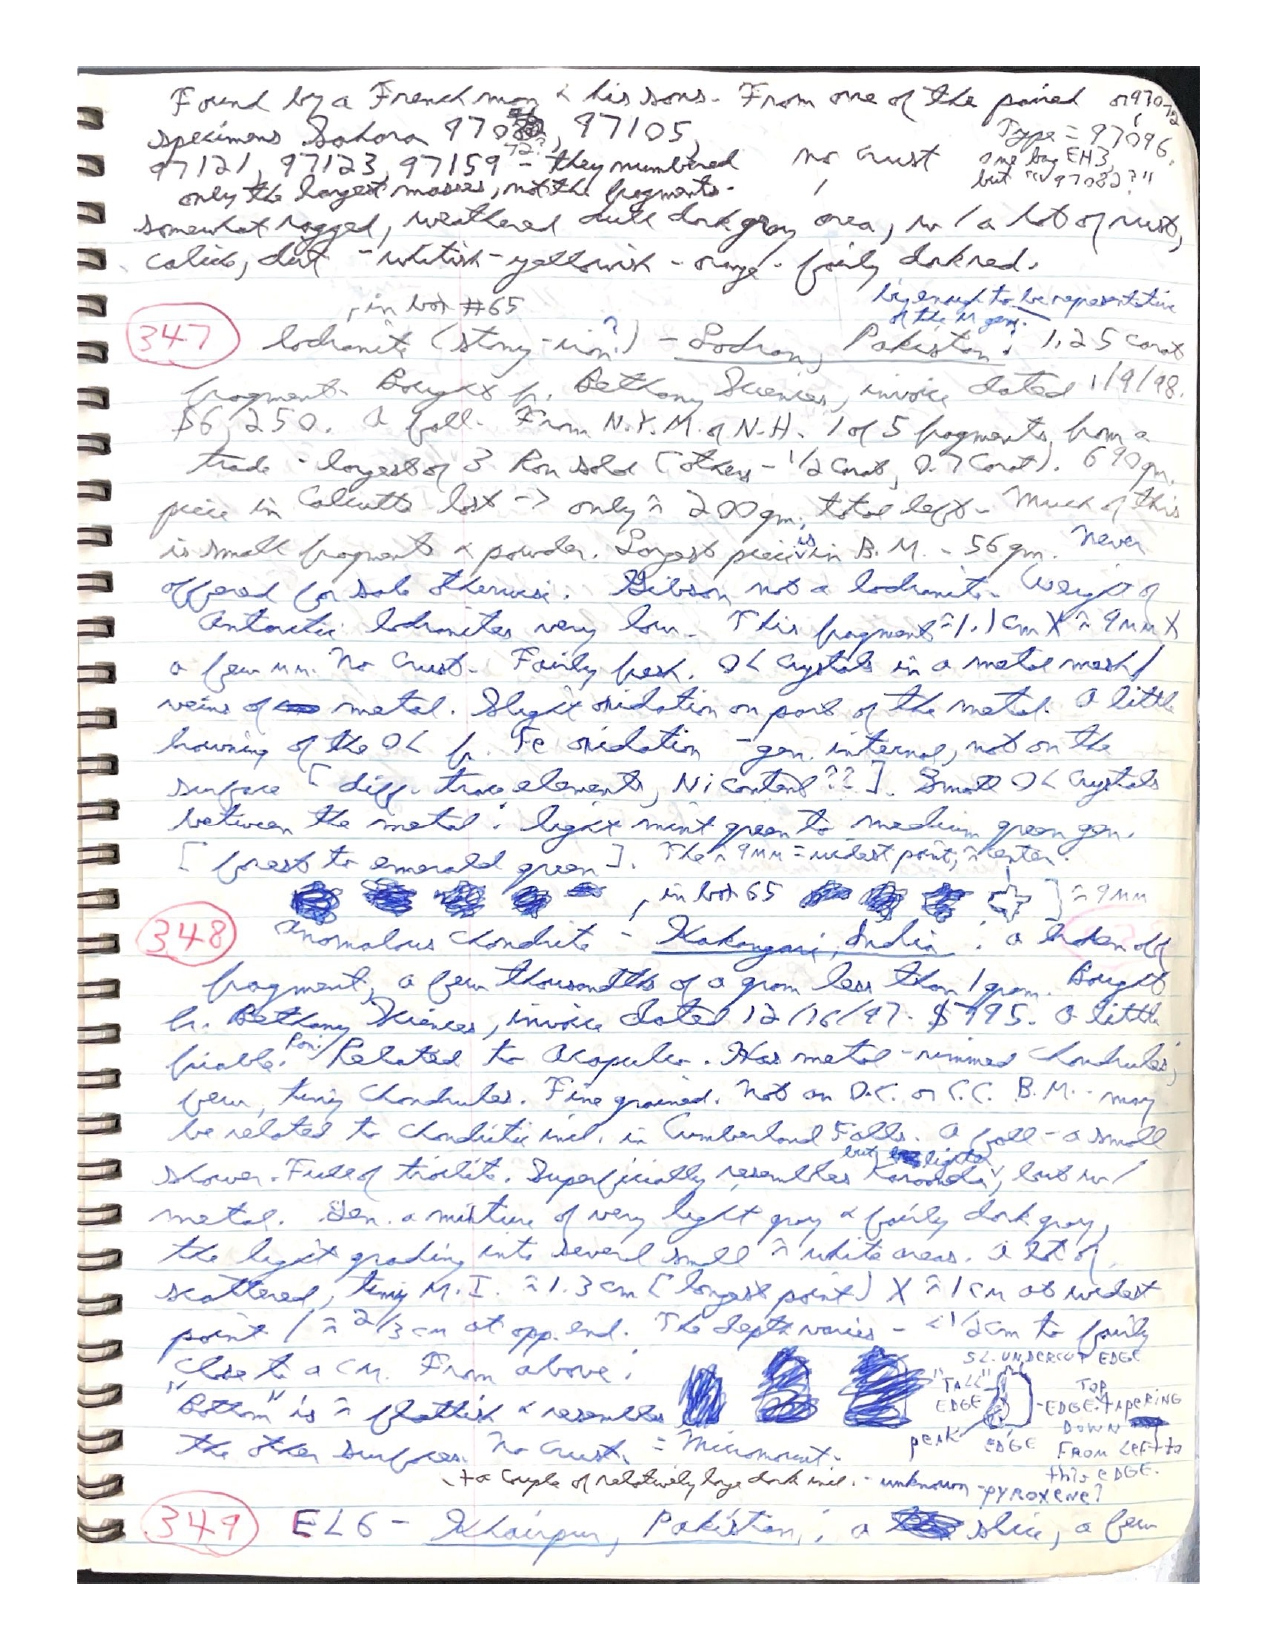 Found by a Frenchman & his sons. From one of the paired or 97072
specimens Sahara 970 , 97105, Type = 97096,
97121, 97123, 97159 - they numbered no crust one bag EH3,
72? but "97082?"
only the largest masses, not the fragments.
somewhat ragged, weathered dull dark gray area, w/a lot of rust,
calich, dirt - whitish - yellowish - orange - fairly dark red.
, in box #65 big enough to be representative
of the M gen.
347 lodranite (stony-iron?) - Lodran, Pakistan: 1.25 carat
fragment. Bought fr. Bethany Sciences, invoice dated 1/9/98.
$6,250. A fall. From N.Y.M. of N.H. 1 of 5 fragments from a
trade - largest of 3 Ron sold (others - 1/2 carat, 0.7 carat). 690 gm.
piece in Calcutta lost -> only ≈ 200 gm. total left. Much of this
is small fragments & powder. Largest piece is in B.M. - 56 gm. Never
offered for sale otherwise. Gibson not a lodranite. Weight of
Antarctic lodranites very low. This fragment ≈ 1.1 cm X ≈ 9 mm X
a few mm. No crust. Fairly fresh. OL crystals in a metal mesh/
veins of metal. Slight oxidation on part of the metal. A little
browning of the OL fr. Fe oxidation - gen. internal, not on the
surface [diff. trace elements, Ni content??]. Small OL crystals
between the metal: light mint green to medium green gen.
[forest to emerald green]. The ≈ 9 mm = widest point, ≈ center.
, in box 65 ] ≈ 9 mm
348 Anomalous Chondrite - Kakangari, India: a broken off
fragment, a few thousandths of a gram less than 1 gram. Bought
fr. Bethany Sciences, invoice dated 12/16/97. $795. A little
friable. Poss. Related to Acapulco. Has metal-rimmed chondrules;
few, tiny chondrules. Fine grained. Not an O.C. or C.C. B.M. - may
be related to chondritic incl. in Cumberland Falls. A fall - a small
but lighter
shower. Full of troilite. Superficially resembles Karoonda, but w/
metal. Gen. a mixture of very light gray & fairly dark gray,
the light grading into several small ≈ white areas. A lot of
scattered, tiny M.I. ≈ 1.3 cm (longest point) X ≈ 1 cm at widest
point / ≈ 2/3 cm at opp. end. The depth varies - <1/2 cm to fairly
close to a cm. From above: SL. UNDERCUT EDGE
"TALL" EDGE TOP EDGE: TAPERING
"Bottom" is ≈ flattish & resembles DOWN
peak EDGE FROM LEFT to
the other surfaces. No crust. = Micromount. this EDGE.
+ a couple of relatively large dark incl. - unknown - pyroxene?
349 EL6 - Khairpur, Pakistan: a slice, a few